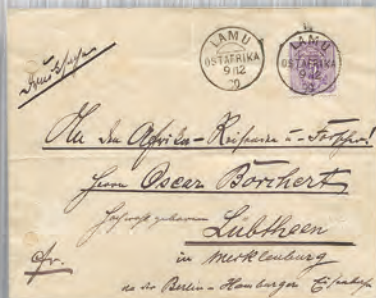 LAMU
OSTAFRIKA
9/12
90
LAMU
OSTAFRIKA
9/12
90
Drucksache
An den Afrika-Reisenden u-Forscher!
Herrn Oscar Borchert
Hochwohlgeboren
Lübtheen
in Mecklenburg
an der Berlin-Hamburger Eisenbahn